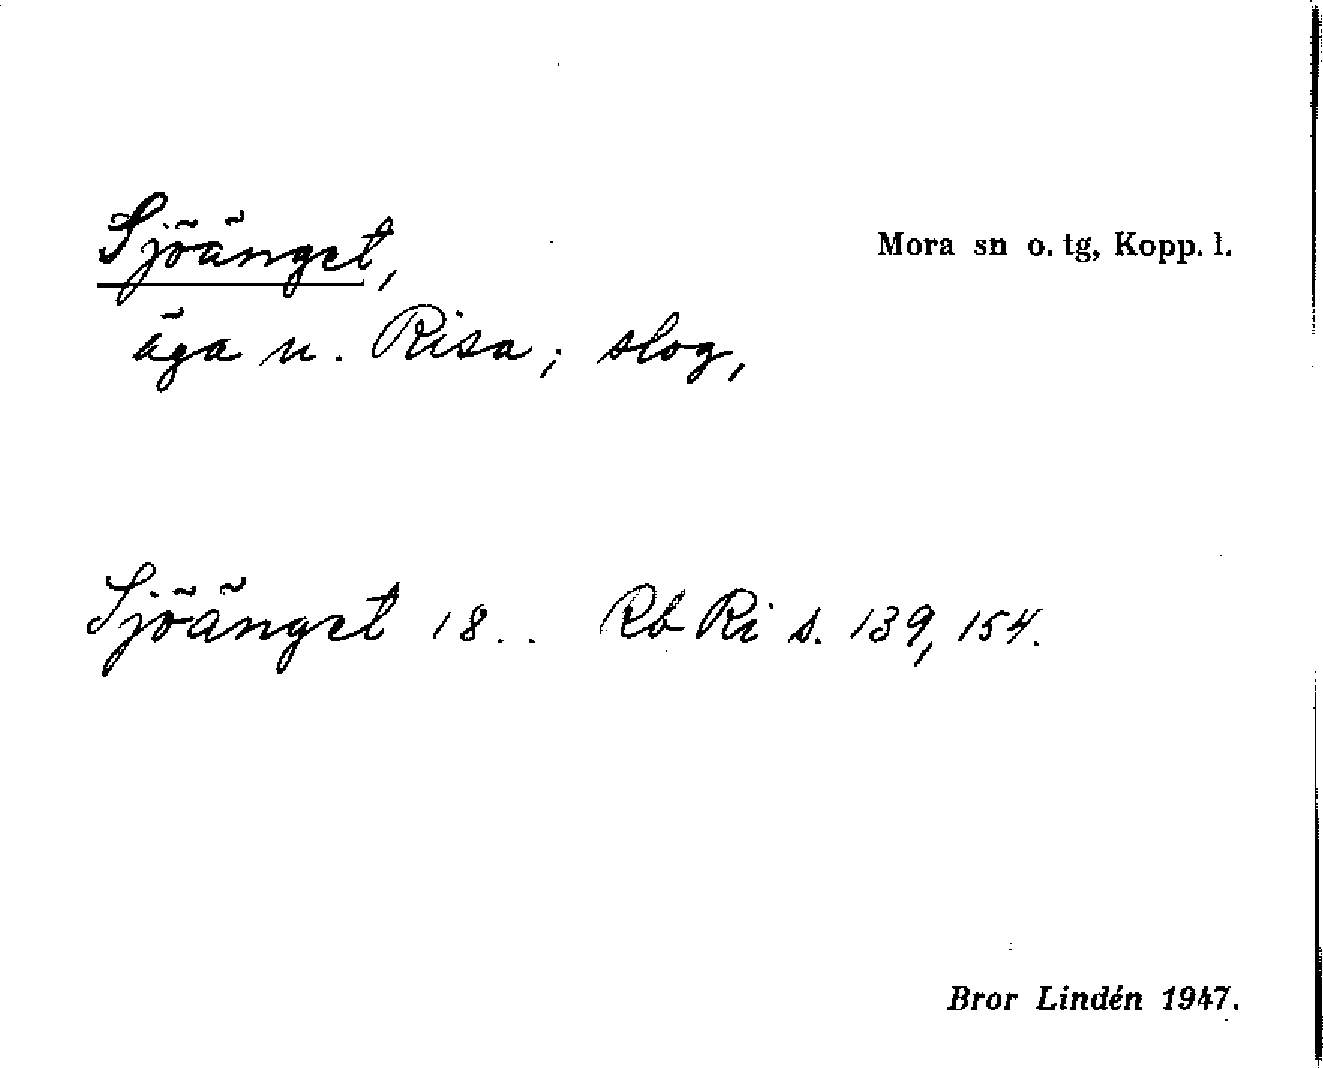 Sjöänget,
Mora sn o. tg, Kopp. l.
äga u. Risa; slog,
Sjöänget 18.. Rb Ri s. 139, 154.
Bror Lindén 1947.